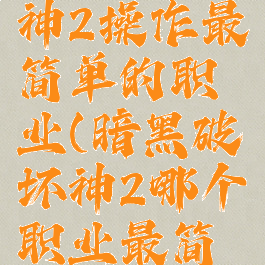 神2操作最
简单的职
业(暗黑破
坏神2哪个
职业最简